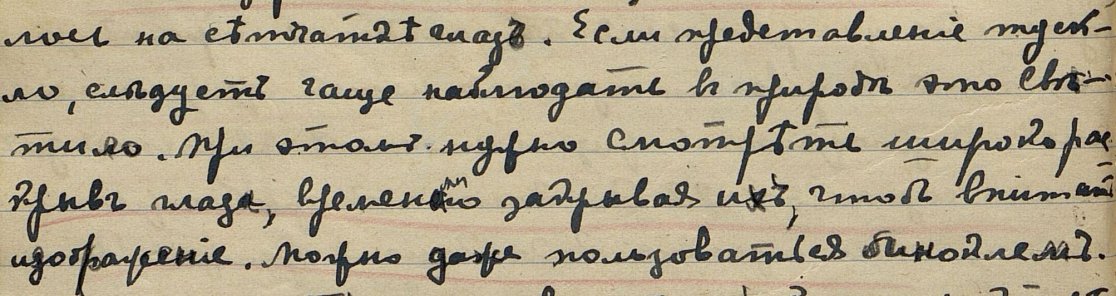 лось на сѣтчаткѣ глазъ. Если представленіе туск-
ло, слѣдуетъ чаще наблюдать въ природѣ это свѣ-
тило. При этомъ нужно смотрѣть широко рас
крывъ глаза, временами закрывая ихъ, чтобъ впитать
изображеніе. Можно даже пользоваться биноклемъ.